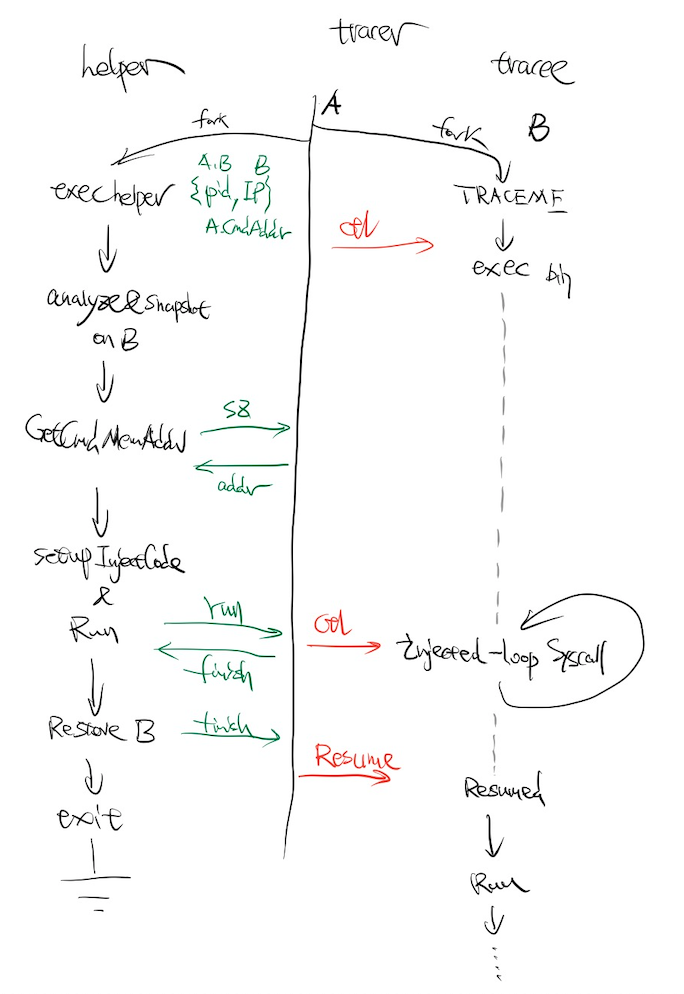 tracer
helper
tracee
A
fork
fork
B
A.B B
exec helper
{pid, IP}
A.CmdAddr
TRACEME
exec bin
analyze & snapshot
on B
sz
GetCmdMemAddr
addr
setup InjectCode
&
Run
run
finish
Injected-loop Syscall
Restore B
finish
Resume
Resumed
exit
Run